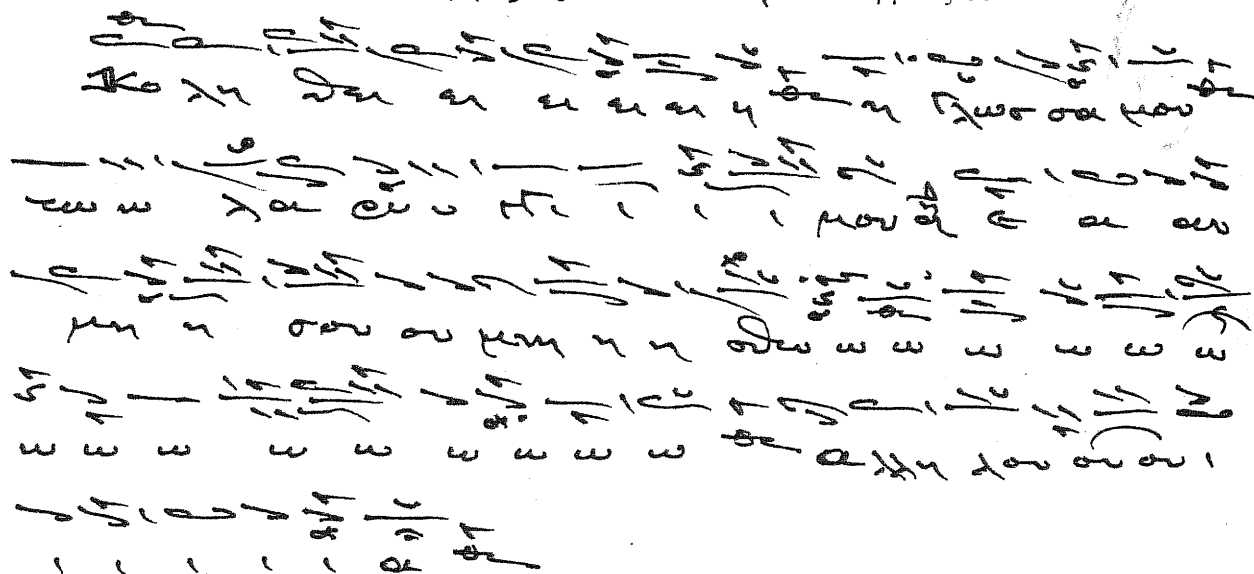 Κο λη θει ει ει ει ει η η Γλωσ σα μου
τω ω λα ρυ υ γγι ι ι ι μου ε α αν
μη η σου ου μνη η η σθω ω ω ω ω ω ω
ω ω ω ω ω ω ω ω ω α λλη λου ου ου ι
ι ι ι ι ι α